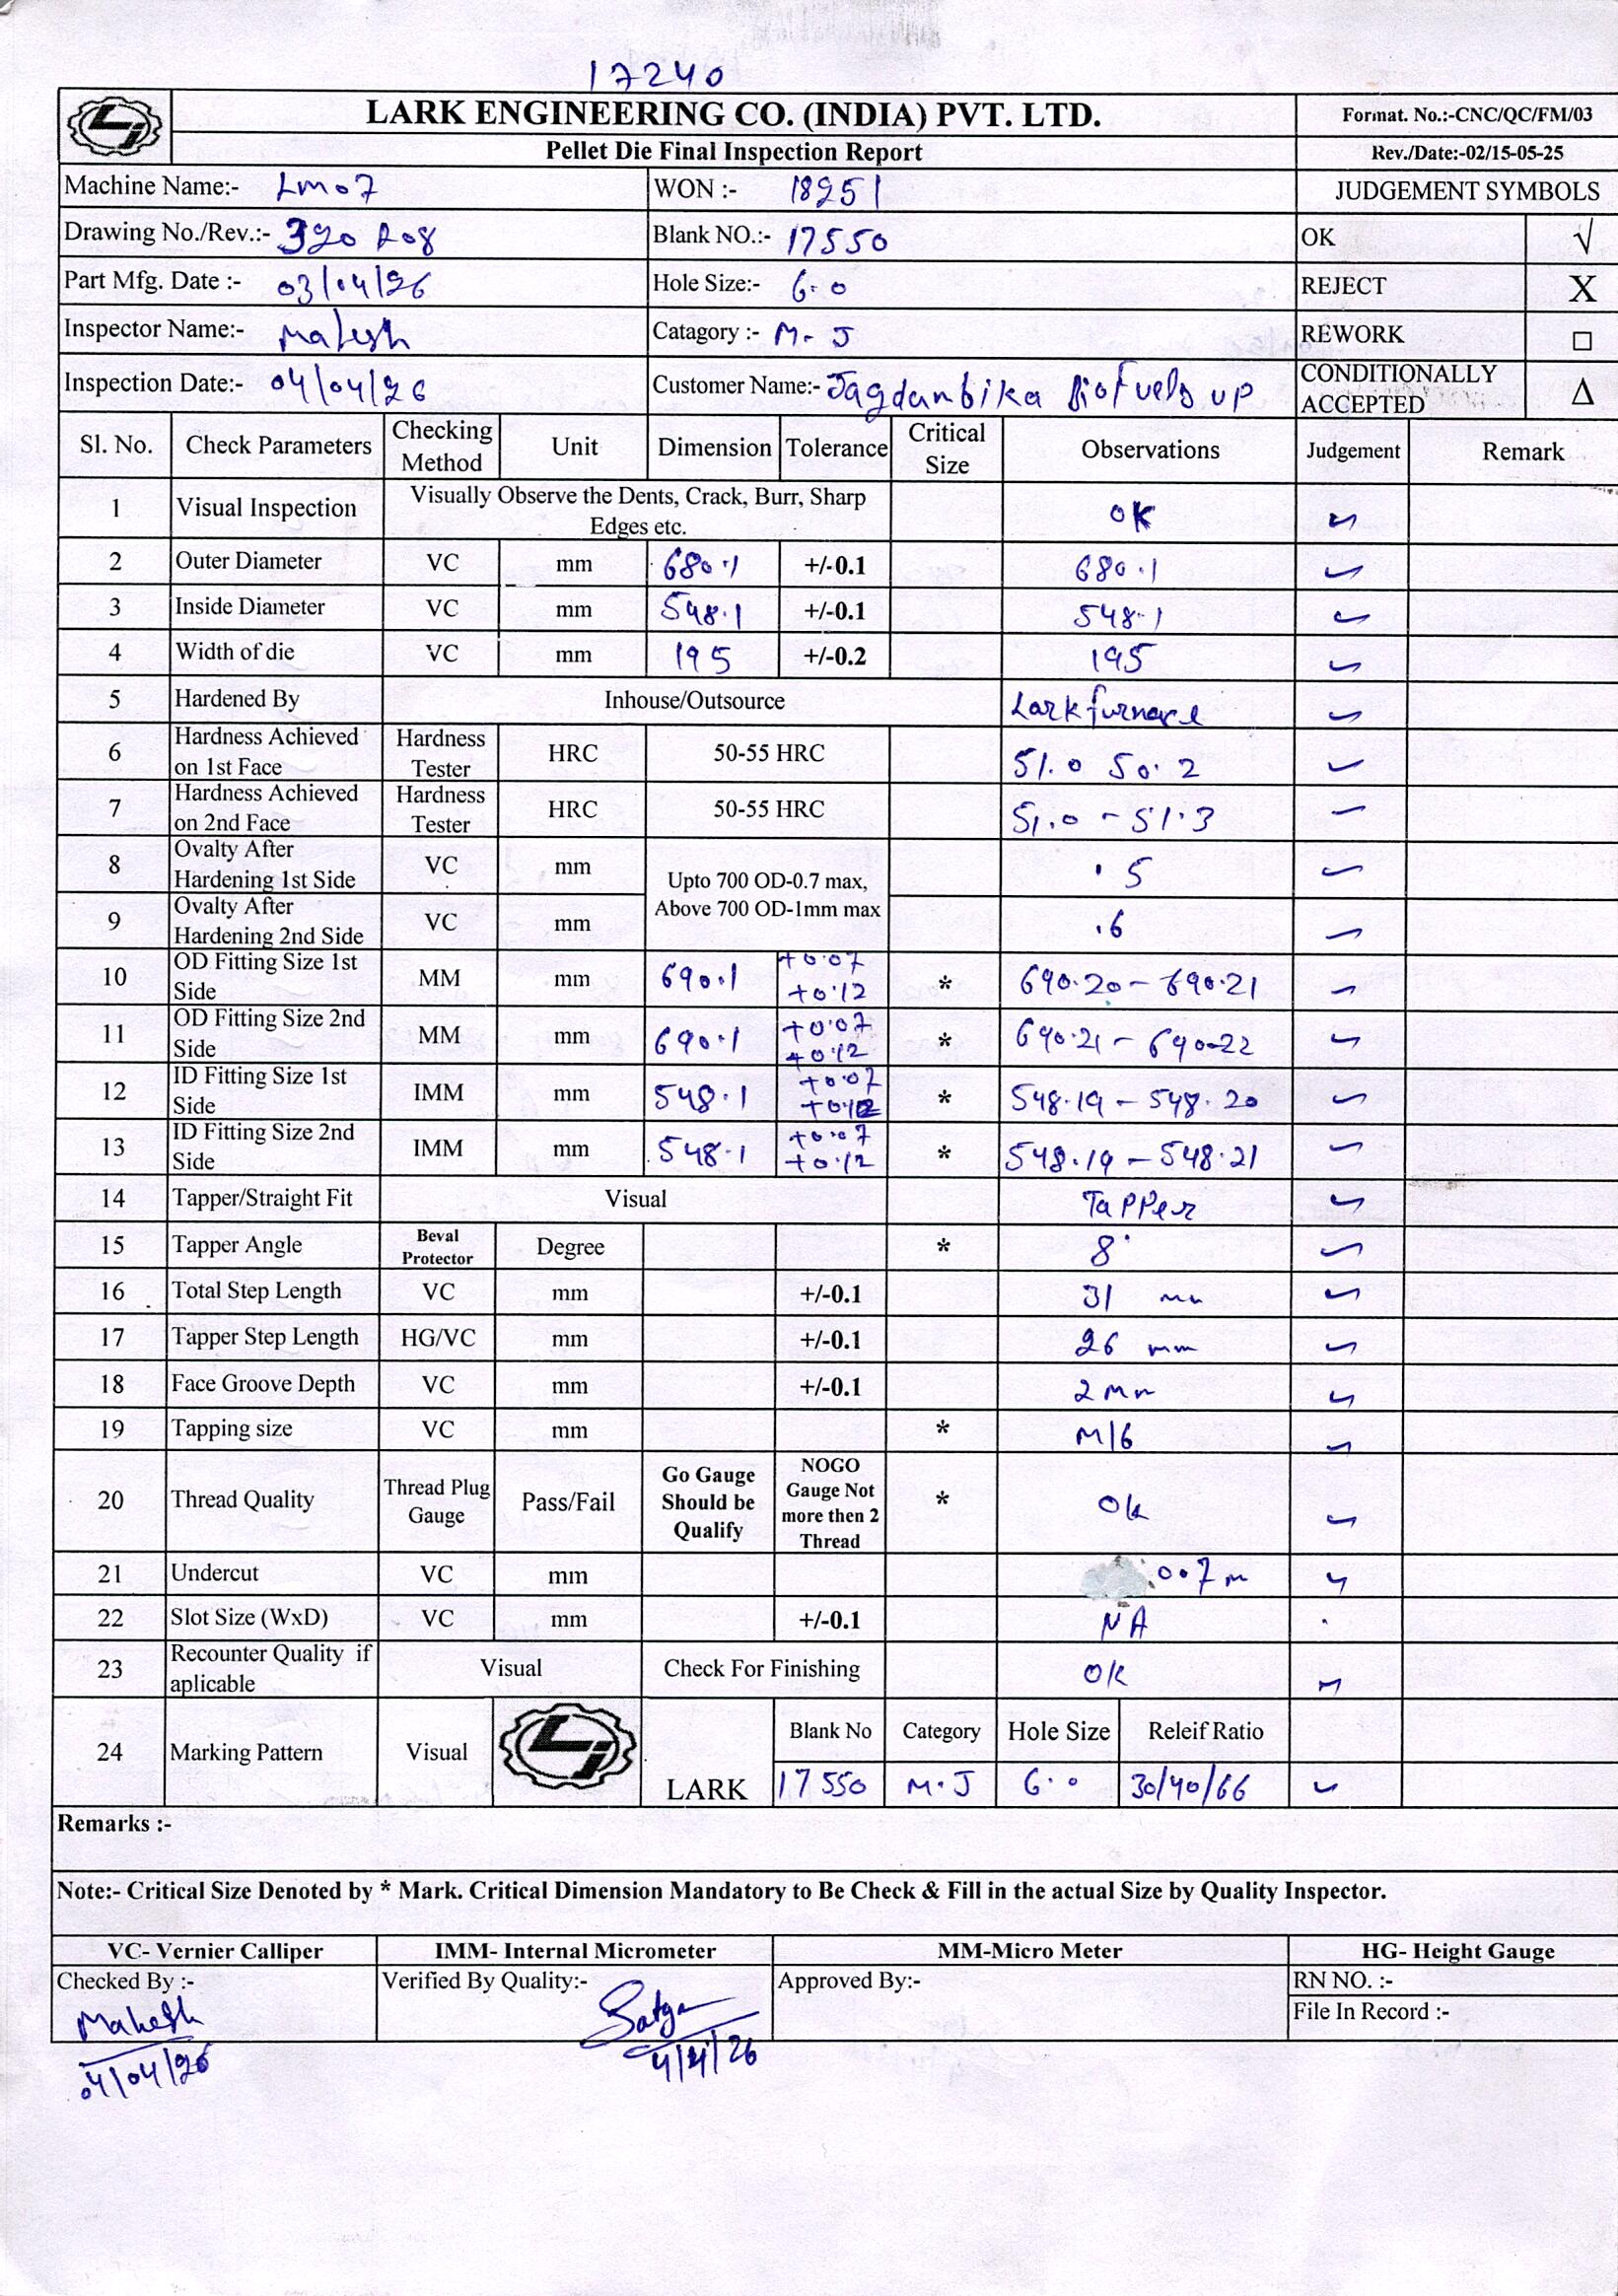 17240
LARK ENGINEERING CO. (INDIA) PVT. LTD.
Format. No.:-CNC/QC/FM/03
Pellet Die Final Inspection Report
Rev./Date:-02/15-05-25
Machine Name:- Lm07 WON :- 18251 JUDGEMENT SYMBOLS
Drawing No./Rev.:- 320 R08 Blank NO.:- 17550 OK √
Part Mfg. Date :- 03/04/26 Hole Size:- 6.0 REJECT X
Inspector Name:- Mahesh Catagory :- M-J REWORK □
Inspection Date:- 04/04/26 Customer Name:- Jagdambika Biofuels up CONDITIONALLY ACCEPTED Δ
Sl. No. Check Parameters Checking Method Unit Dimension Tolerance Critical Size Observations Judgement Remark
1 Visual Inspection Visually Observe the Dents, Crack, Burr, Sharp Edges etc. OK ✓
2 Outer Diameter VC mm 680.1 +/-0.1 680.1 ✓
3 Inside Diameter VC mm 548.1 +/-0.1 548.1 ✓
4 Width of die VC mm 195 +/-0.2 195 ✓
5 Hardened By Inhouse/Outsource Lark furnace ✓
6 Hardness Achieved on 1st Face Hardness Tester HRC 50-55 HRC 51.0 50.2 ✓
7 Hardness Achieved on 2nd Face Hardness Tester HRC 50-55 HRC 51.0 - 51.3 ✓
8 Ovalty After Hardening 1st Side VC mm Upto 700 OD-0.7 max, Above 700 OD-1mm max .5 ✓
9 Ovalty After Hardening 2nd Side VC mm .6 ✓
10 OD Fitting Size 1st Side MM mm 690.1 +0.07 +0.12 * 690.20 - 690.21 ✓
11 OD Fitting Size 2nd Side MM mm 690.1 +0.07 +0.12 * 690.21 - 690.22 ✓
12 ID Fitting Size 1st Side IMM mm 548.1 +0.07 +0.12 * 548.19 - 548.20 ✓
13 ID Fitting Size 2nd Side IMM mm 548.1 +0.07 +0.12 * 548.19 - 548.21 ✓
14 Tapper/Straight Fit Visual Tapper ✓
15 Tapper Angle Beval Protector Degree * 8° ✓
16 Total Step Length VC mm +/-0.1 31 mm ✓
17 Tapper Step Length HG/VC mm +/-0.1 26 mm ✓
18 Face Groove Depth VC mm +/-0.1 2 mm ✓
19 Tapping size VC mm * M16 ✓
20 Thread Quality Thread Plug Gauge Pass/Fail Go Gauge Should be Qualify NOGO Gauge Not more then 2 Thread * Ok ✓
21 Undercut VC mm ✓
22 Slot Size (WxD) VC mm +/-0.1 NA
23 Recounter Quality if aplicable Visual Check For Finishing OK ✓
24 Marking Pattern Visual LARK Blank No Category Hole Size Releif Ratio
17550 M.J 6.0 30/40/66 ✓
Remarks :-
Note:- Critical Size Denoted by * Mark. Critical Dimension Mandatory to Be Check & Fill in the actual Size by Quality Inspector.
VC- Vernier Calliper IMM- Internal Micrometer MM-Micro Meter HG- Height Gauge
Checked By :- Verified By Quality:- Approved By:- RN NO. :-
Mahesh Satya File In Record :-
04/04/26 4/4/26